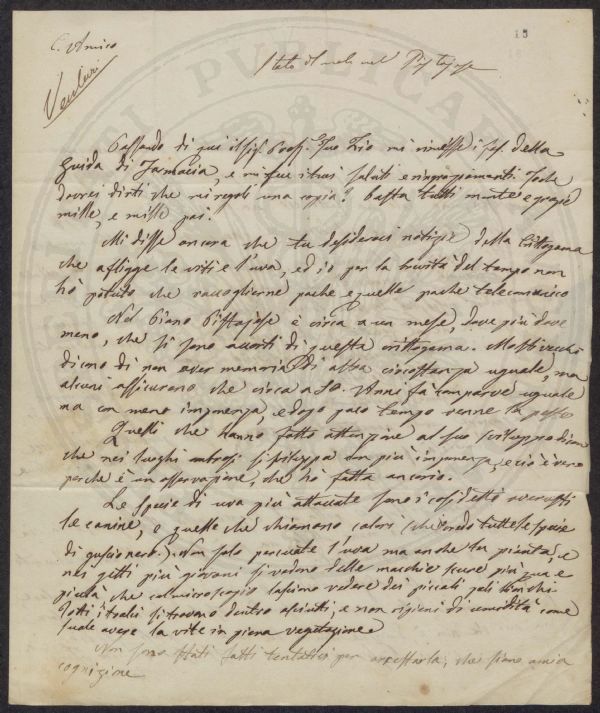 13
C. Amico
Venturi
Stato del male nel Pistojese
Passando di qui il Sig. Prof. Tuo Zio mi rimesse i fas. della
Guida di Farmacia, e mi fece i tuoi saluti e ringraziamenti. Io che
dovrei dirti che mi regali una copia? basta tutti mente e grazie
mille, e mille poi.
Mi disse ancora che tu desideravi notizie della Crittogama
che affligge le viti e l'uva, ed io per la brevità del tempo non
hò potuto che raccoglierne poche e quelle poche te le comunico
Nel Piano Pistojese è circa a un mese, dove più dove
meno, che si sono accorti di questa crittogama. Molti vecchi
dicono di non aver memoria di altra circostanza uguale, ma
alcuni assicurano che circa a 50. Anni fa comparve uguale
ma con meno imponenza, e dopo poco tempo venne la
Quelli che hanno fatto attenzione al suo sviluppo dicono
che nei luoghi ombrosi si sviluppa con più imponenza, e ciò è vero
perche è un osservazione, che hò fatta ancor io.
Le Specie di uva più attaccate sono i così detti
le canine, e quelle che chiamano colori (che sono tutte le specie
di guscio nero). Non solo percuote l'uva ma anche la pianta, e
nei gitti più giovani si vedono delle macchie scure più grandi e
piccole che col microscopio lasciano vedere dei piccoli peli bianchi
Tutti i tralci si trovano dentro asciutti, e non rigieni di umidità come
suole avere la vite in piena vegetazione
Non sono stati fatti tentativi per arrestarla, che siano a mia
cognizione